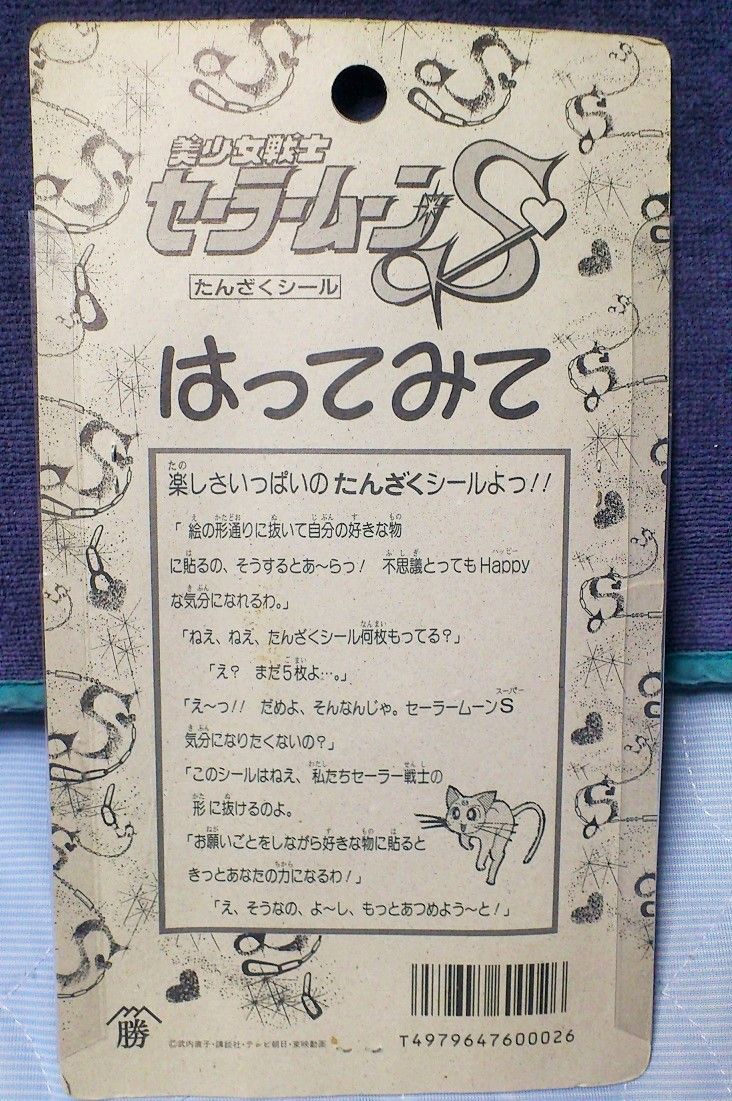 美少女戦士
セーラームーンS
たんざくシール
はってみて
楽しさいっぱいのたんざくシールよっ!!
「絵の形通りに抜いて自分の好きな物
に貼るの、そうするとあ〜らっ! 不思議とってもHappy
な気分になれるわ。」
「ねえ、ねえ、たんざくシール何枚もってる?」
「え? まだ5枚よ…。」
「え〜っ!! だめよ、そんなんじゃ。セーラームーンS
気分になりたくないの?」
「このシールはねえ、私たちセーラー戦士の
形に抜けるのよ。
「お願いごとをしながら好きな物に貼ると
きっとあなたの力になるわ!」
「え、そうなの、よ〜し、もっとあつめよう〜と!」
勝
©武内直子・講談社・テレビ朝日・東映動画
T4979647600026